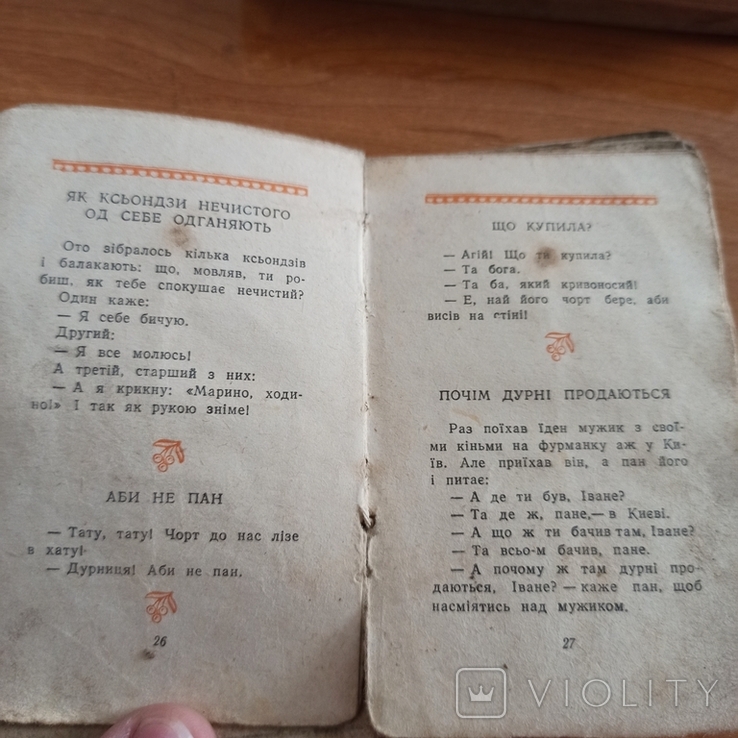 ЯК КСЬОНДЗИ НЕЧИСТОГО
ОД СЕБЕ ОДГАНЯЮТЬ
Ото зібралось кілька ксьондзів
і балакають: що, мовляв, ти ро-
биш, як тебе спокушає нечистий?
Один каже:
— Я себе бичую.
Другий:
— Я все молюсь!
А третій, старший з них:
— А я крикну: «Марино, ходи-
но!» І так як рукою зніме!
АБИ НЕ ПАН
— Тату, тату! Чорт до нас лізе
в хату!
— Дурниця! Аби не пан.
26
ЩО КУПИЛА?
— Агій! Що ти купила?
— Та бога.
— Та ба, який кривоносий!
— Е, най його чорт бере, аби
висів на стіні!
ПОЧІМ ДУРНІ ПРОДАЮТЬСЯ
Раз поїхав їден мужик з свої-
ми кіньми на фурманку аж у Ки-
їв. Але приїхав він, а пан його
і питає:
— А де ти був, Іване?
— Та де ж, пане,— в Києві.
— А що ж ти бачив там, Іване?
— Та всьо-м бачив, пане.
— А почому ж там дурні про-
даються, Іване? — каже пан, щоб
насміятись над мужиком.
27
VIOLITY